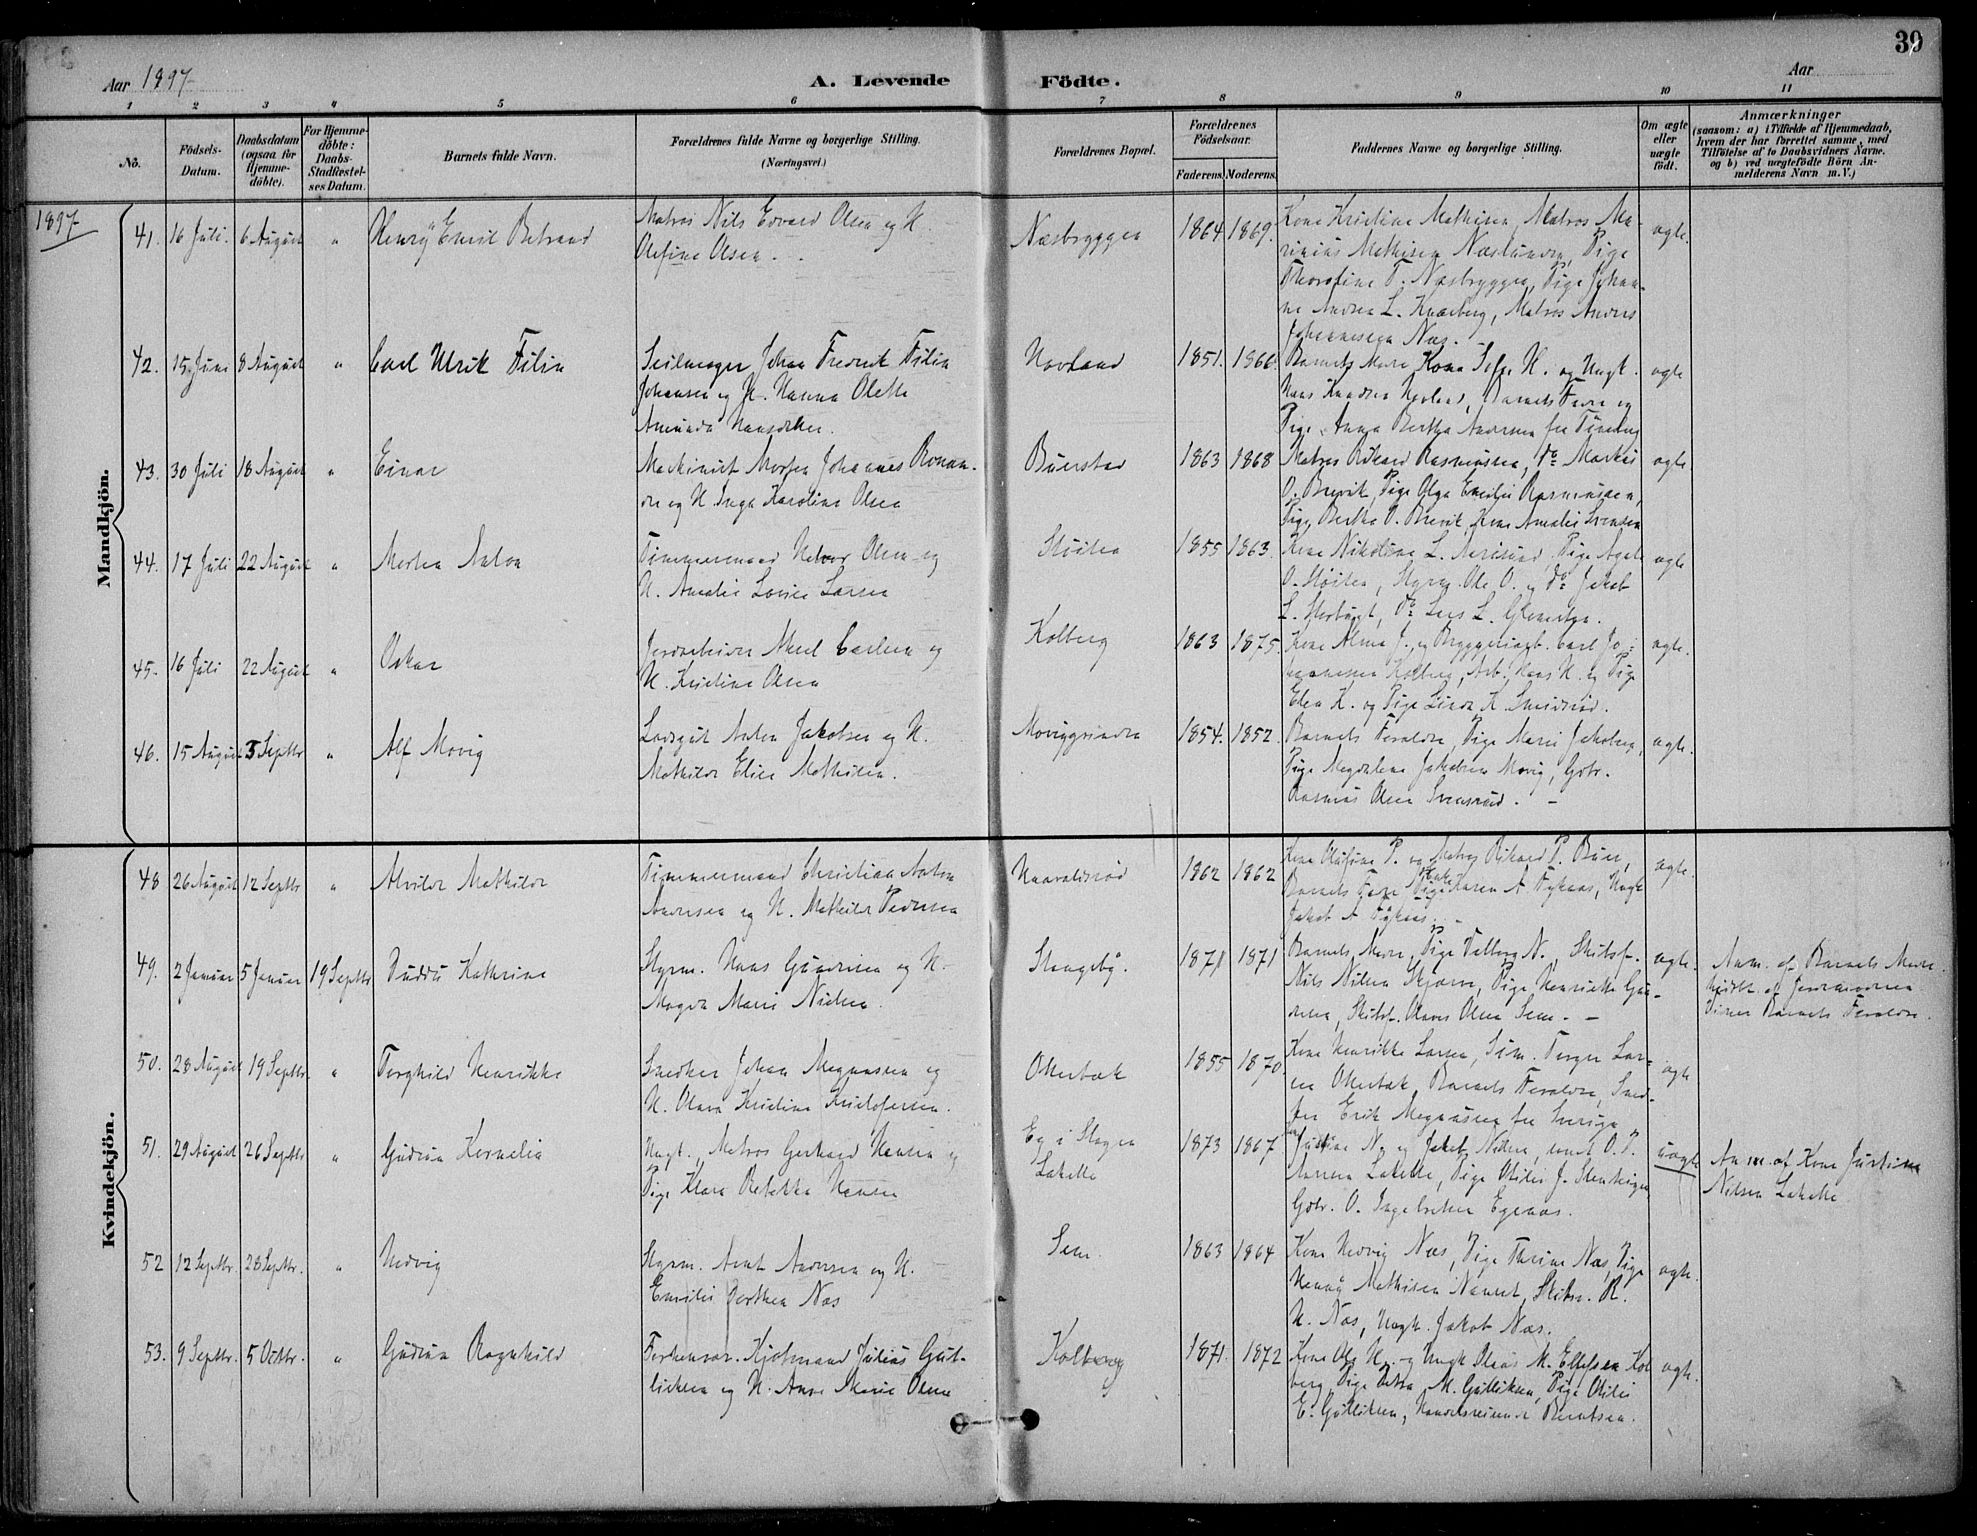 39
Aar 1897
A. Levende Födte.
Aar
1 2 3 4 5 6 7 8 9 10 11
No.
Födsels-Datum.
Daabsdatum (ogsaa for Hjemme-döbte).
For Hjemme-döbte: Daabs-Stadfæstel-ses Datum.
Barnets fulde Navn.
Forældrenes fulde Navne og borgerlige Stilling. (Næringsvei.)
Forældrenes Bopæl.
Forældrenes Födselsaar.
Faderens. Moderens.
Faddernes Navne og borgerlige Stilling.
Om ægte eller uægte födt.
Anmærkninger
(saasom: a) i Tilfælde af Hjemmedaab, hvem der har forrettet samme, med Tilföielse af to Daabsvidners Navne. og b) ved uægtefödte Börn Anmelderens Navn m. V.)
1897
Mandkjön.
41. 16 Juli. 6 August " Henry Emil Betrand
Matros Nils Edvard Olsen og H.
Olefine Olsen.
Næsbryggen 1864 1869.
Kone Kristine Mathisen, Matros Ma-
rinius Mathisen Næslunden, Pige
Thorofine T. Næsbryggen, Pige Johan-
ne Andrea L. Knarberg, Matros Anders
Johannesen Næs.
ægte.
42. 15 Juni 8 August " Carl Ulrik Filin
Seilmager Johan Fredrik Filin
Johansen og H. Hanna Olette
Amunda Hansdtter.
Hovland 1851. 1866.
Barnets More, Kone Sofie H. og Ungk.
Hans Knudsen Hovland, Barnets Fader og
Pige Anna Bertha Andersen fra
ægte
43. 30 Juli 18 August " Einar
Maskinist Morten Johannes
og H. Inga Karoline Olsen
Buerstad 1863 1868
Matros Rikard Rasmussen, do Markus
O. Brevik, Pige Olga Emilie Rasmussen,
Pige Bertha O. Brevik, Kone Amalie Svensen
ægte
44. 17 Juli 22 August " Morten Anton
Tømmermand Halvor Olsen og
H. Amalie Lovise Larsen
Støiten 1855 1863.
Kone Nikoline L. Pige Agate
O. Støiten, Styrm. Ole O. og do Jakob
L. do Lars L.
ægte
45. 16 Juli 22 August " Oskar
Jordarbeider Carlsen og
H. Kristine Olsen
Kolberg 1863 1875.
Kone Alma J. og Bryggeriarb. Carl Jo-
hannesen Kolberg, Arb. Hans H. og Pige
Elen K. og Pige Linda K. Smidsrød.
ægte.
46. 15 August 5 Septbr " Alf Movig
Lodsgut Anton Jakobsen og H.
Mathilde Elise Mathisen.
1854. 1852.
Barnets Forældre, Pige Marie Jakobsen,
Pige Magdalene Jakobsen Movig, Gbr.
Rasmus Olsen
ægte.
Kvindekjön.
48 26 August 12 Septbr " Alvilde Mathilde
Tømmermand Christian Anton
Andersen og H. Mathilde Pedersen
Haraldsrød 1862 1862
Kone Olufine P. og Matros Rikard P. Buer,
Barnets Fader, Pige Karen A. Fykaas, Ungk.
Jakob A Fykaas.
ægte.
49. 2 Januar 5 Januar 19 Septbr Duddu Kathrine
Styrm. Hans Gundersen og H.
Magda Marie Nielsen.
Skagebø. 1871 1871
Barnets More, Pige Valborg N., Skibsf.
Nils Nilsen Skjærv, Pige Henriette Gun-
dersen, Skibsf. Olaves Olsen Sem.
ægte.
Anm. af Barnets More.
Hjdbt. af Jordmoderen
Vidner Barnets Forældre.
50. 28 August 19 Septbr. " Torghild Henrikke
Snedker Johan Magnussen og
H. Olava Kristine Kristofersen.
Ollerbæk 1855 1870
Kone Henrikke Larsen, Torger Lar-
sen Ollerbæk, Barnets Forældre, Sned-
ker Erik Magnussen fra Sverige
ægte
51. 29 August 26 Septbr " Gudrun Kornelia
Ungk., Matros Gerhard Hansen og
Pige Klara Rebekka Hansen
Eg i Slagen
Lakelle
1873 1867
Justine N. og Jakob Nilsen, O. P.
Larsen Lakelle, Pige Otilie J.
Gbr. O. Ingebretsen Egenæs.
uægte
Anm. af Kone Justine
Nilsen Lakelle
52 12 Septbr. 28 Septbr. " Hedvig
Styrm. Arnt Andersen og H.
Emilie Dorthea Næs
Sem. 1863 1864
Kone Hedvig Næs, Pige Thrine Næs, Pige
Henny Mathisen R.
H. Næs, Ungk. Jakob Næs.
ægte.
53. 9 Septbr. 5 Octbr. " Gudrun Ragnhild
Kjøbmand Julius Gul-
liksen og H. Anne Marie Olsen
Kolberg 1871. 1872
Kone Ole H. og Ungk Olaus M. Ellefsen Kol
berg, Pige Petra M. Gulliksen, Pige Otilie
E. Gulliksen, Handelsreisende Berntsen.
ægte.